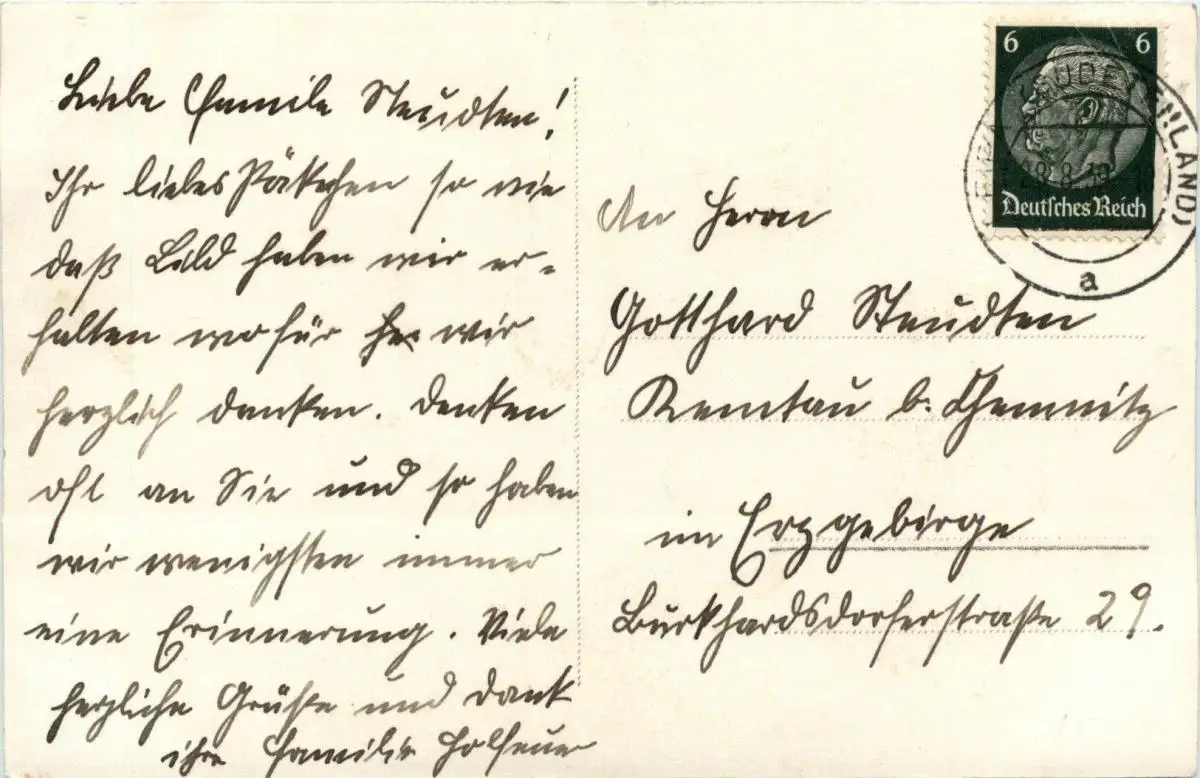 Liebe Familie Steudten!
Ihr liebes Päkchen so wie
daß Bild haben wir er-
halten wo für wir
herzlich danken. Denken
oft an Sie und so haben
wir wenigsten immer
eine Erinnerung. Viele
herzliche Grüße und Dank
ihre Familie
6 6
SUDETENLAND)
Deutsches Reich
a
An Herrn
Gotthard Steudten
Kemtau b. Chemnitz
im Erzgebirge
Burkhardsdorferstraße 29.